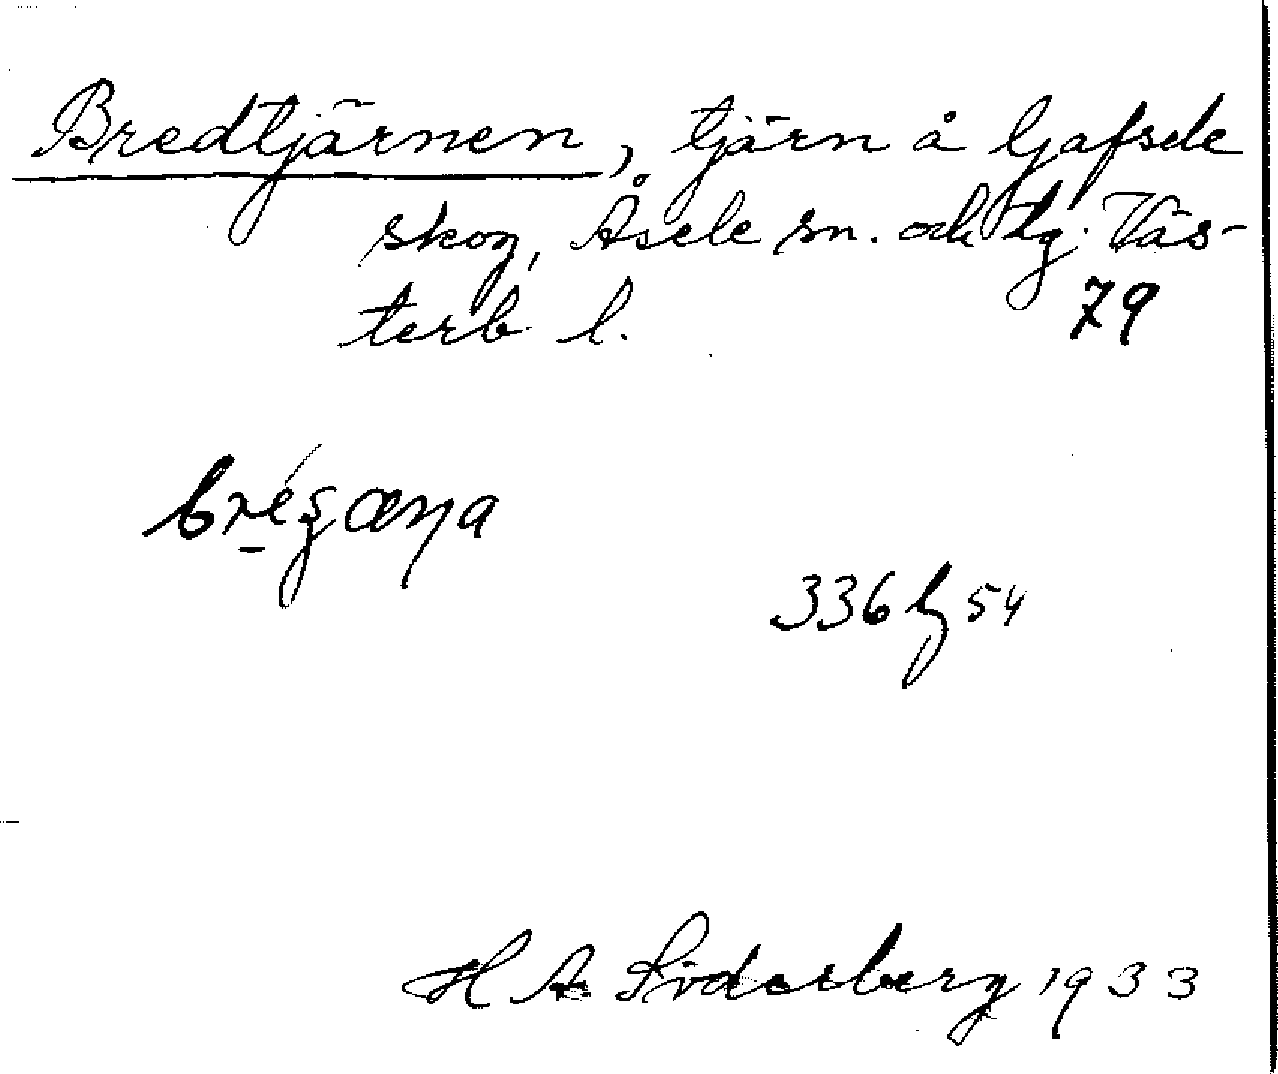 Bredtjärnen, tjärn å Gafsele
skog, Åsele sn. och tg. Väs-
terb. l.
79
336 h 54
H A Söderberg 1933